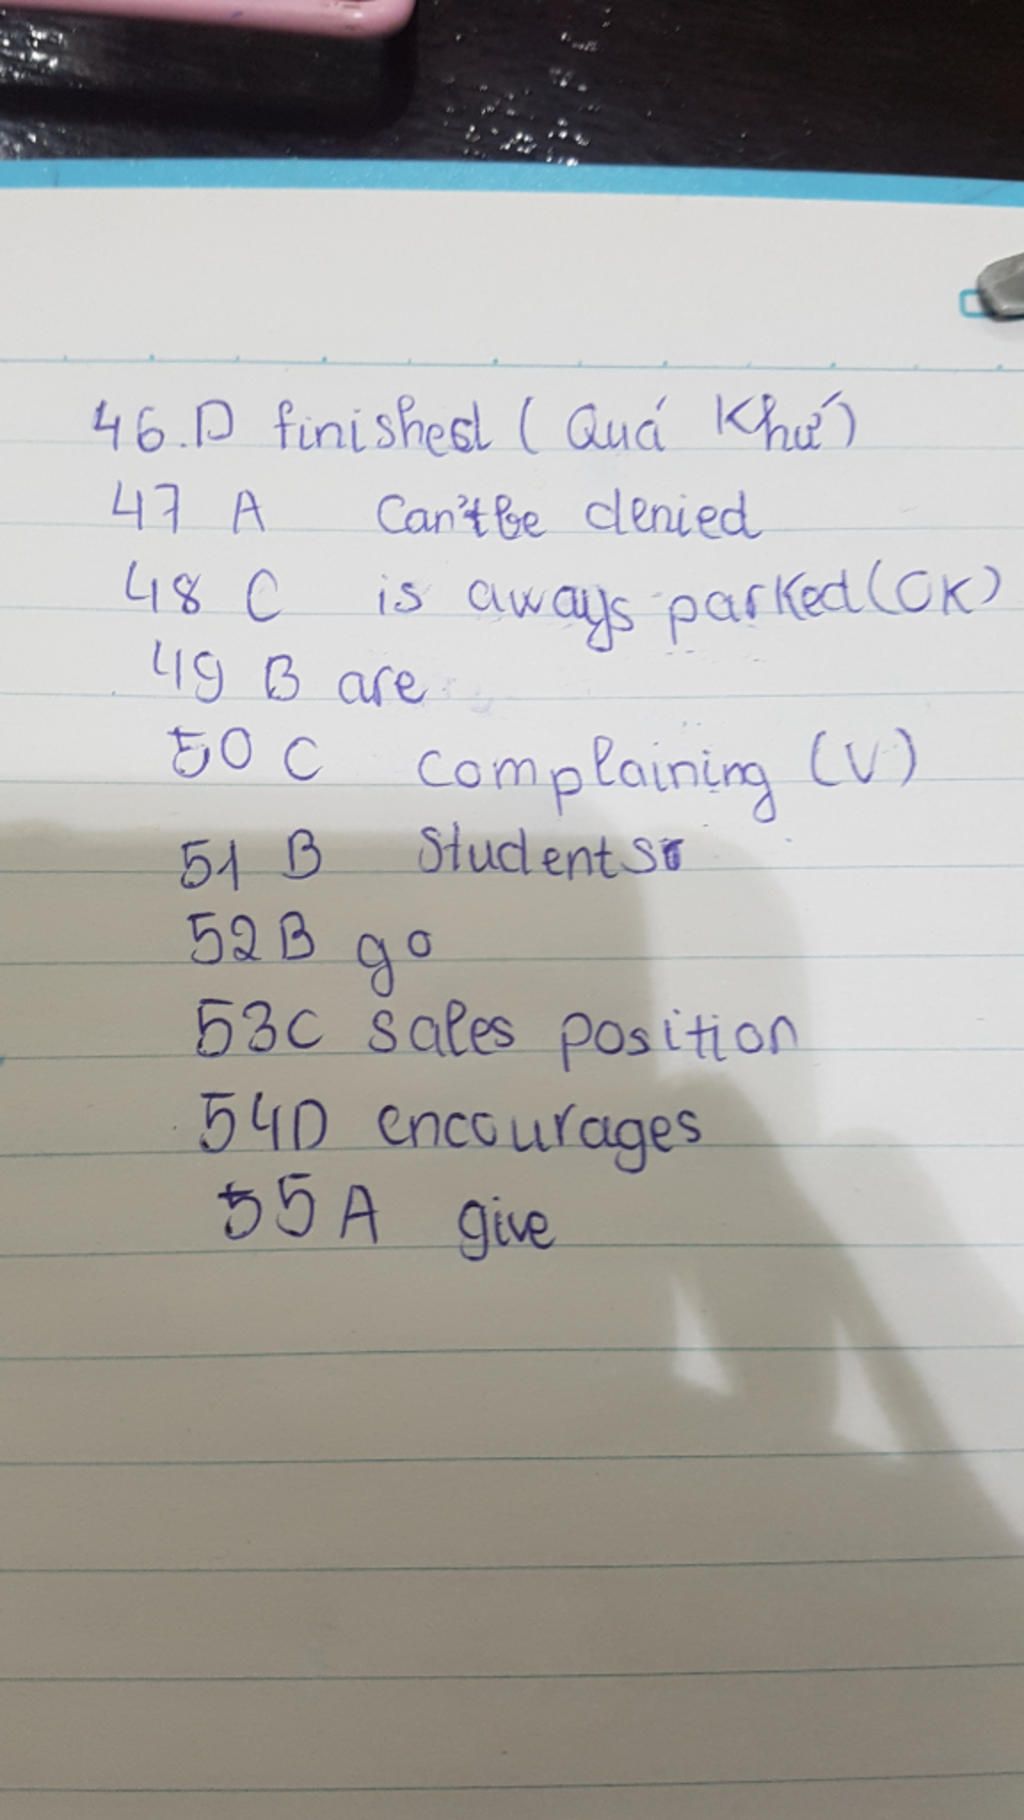 46.D finished (Quá Khứ)
47 A Can't be denied
48 C is aways parked (CK)
49 B are
50 C Complaining (V)
51 B Students
52 B go
53C sales position
54D encourages
55 A give